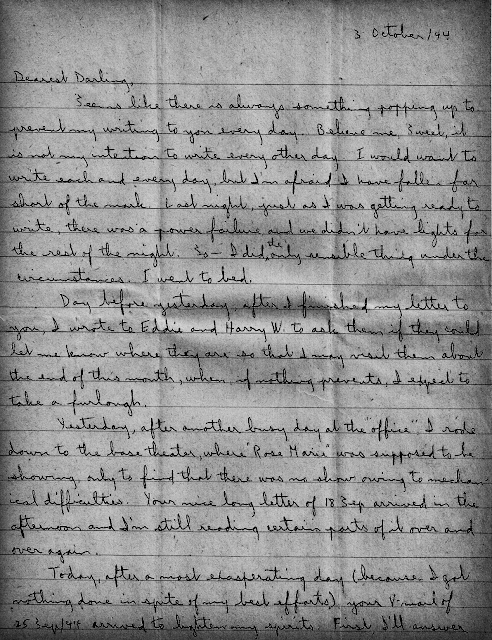 3 October/44
Dearest Darling,
Seems like there is always something popping up to
prevent my writing to you every day. Believe me, Sweet, it
is not my intention to write every other day. I would want to
write each and every day, but I'm afraid I have fallen far
short of the mark. Last night, just as I was getting ready to
write, there was a power failure and we didn't have lights for
the rest of the night. So - I did the only sensible thing under the
circumstances. I went to bed.
Day before yesterday, after I finished my letter to
you, I wrote to Eddie and Harry W. to ask them if they could
let me know where they are so that I may visit them about
the end of this month, when, if nothing prevents, I expect to
take a furlough.
Yesterday, after another busy day at the "office" I rode
down to the base theater, where "Rose Marie" was supposed to be
showing only to find that there was no show owing to mechan-
ical difficulties. Your nice long letter of 18 Sep arrived in the
afternoon and I'm still reading certain parts of it over and
over again.
Today, after a most exasperating day (because I got
nothing done in spite of my best efforts) your V-mail of
25 Sep/44 arrived to lighten my spirits. First I'll answer